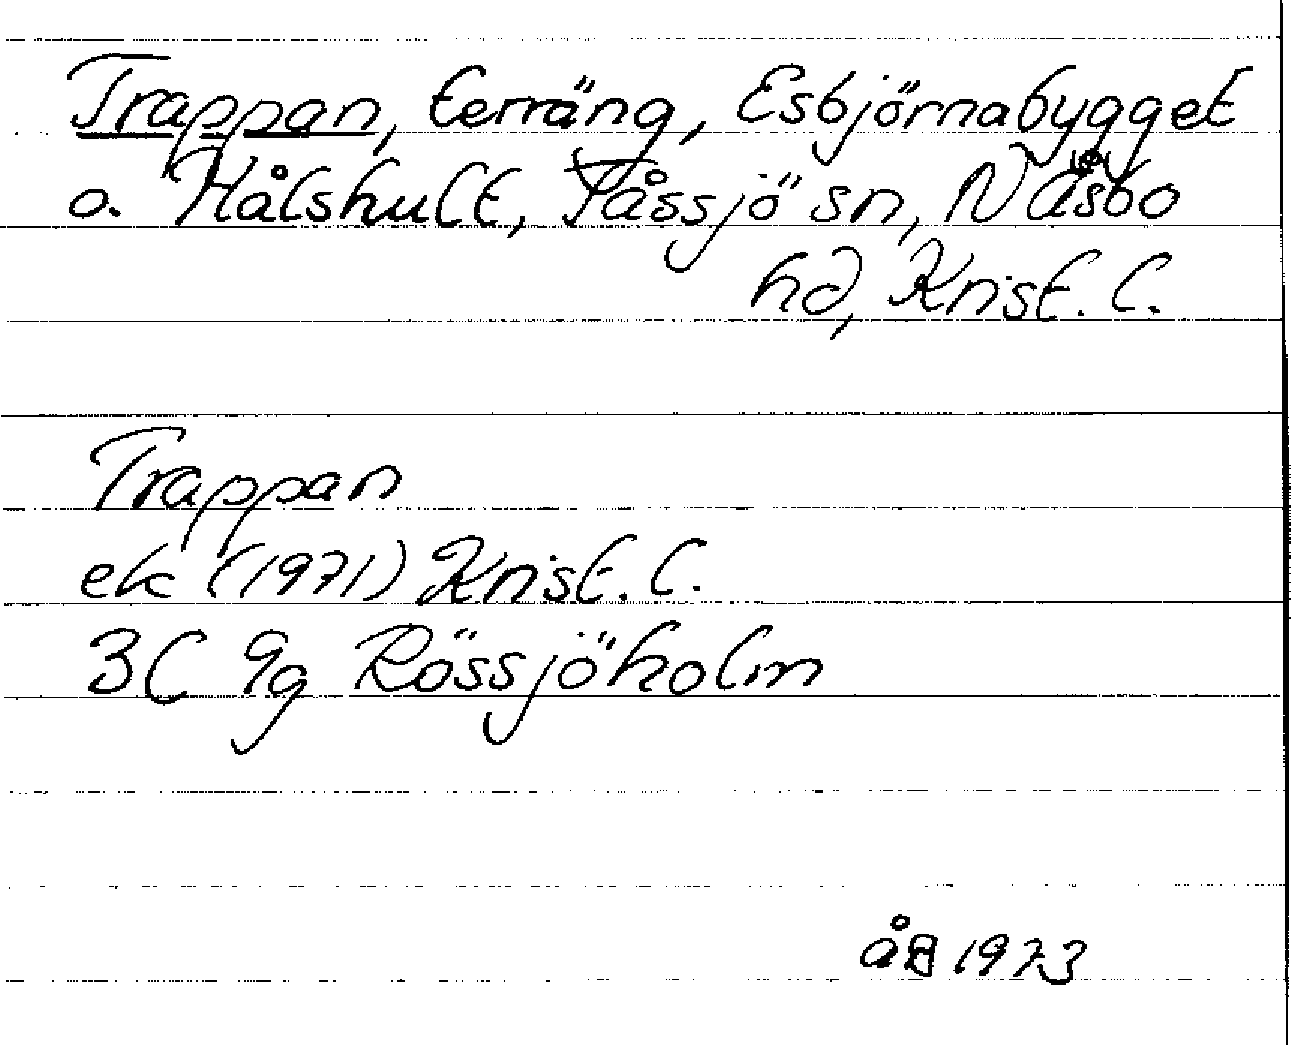 Trappan, terräng, Esbjörnabygget
o. Hålshult, Tåssjö sn, N Åsbo
hd, Krist. l.
Trappan
ek (1971) Krist. l.
3C 9g Rössjöholm
åB 1973